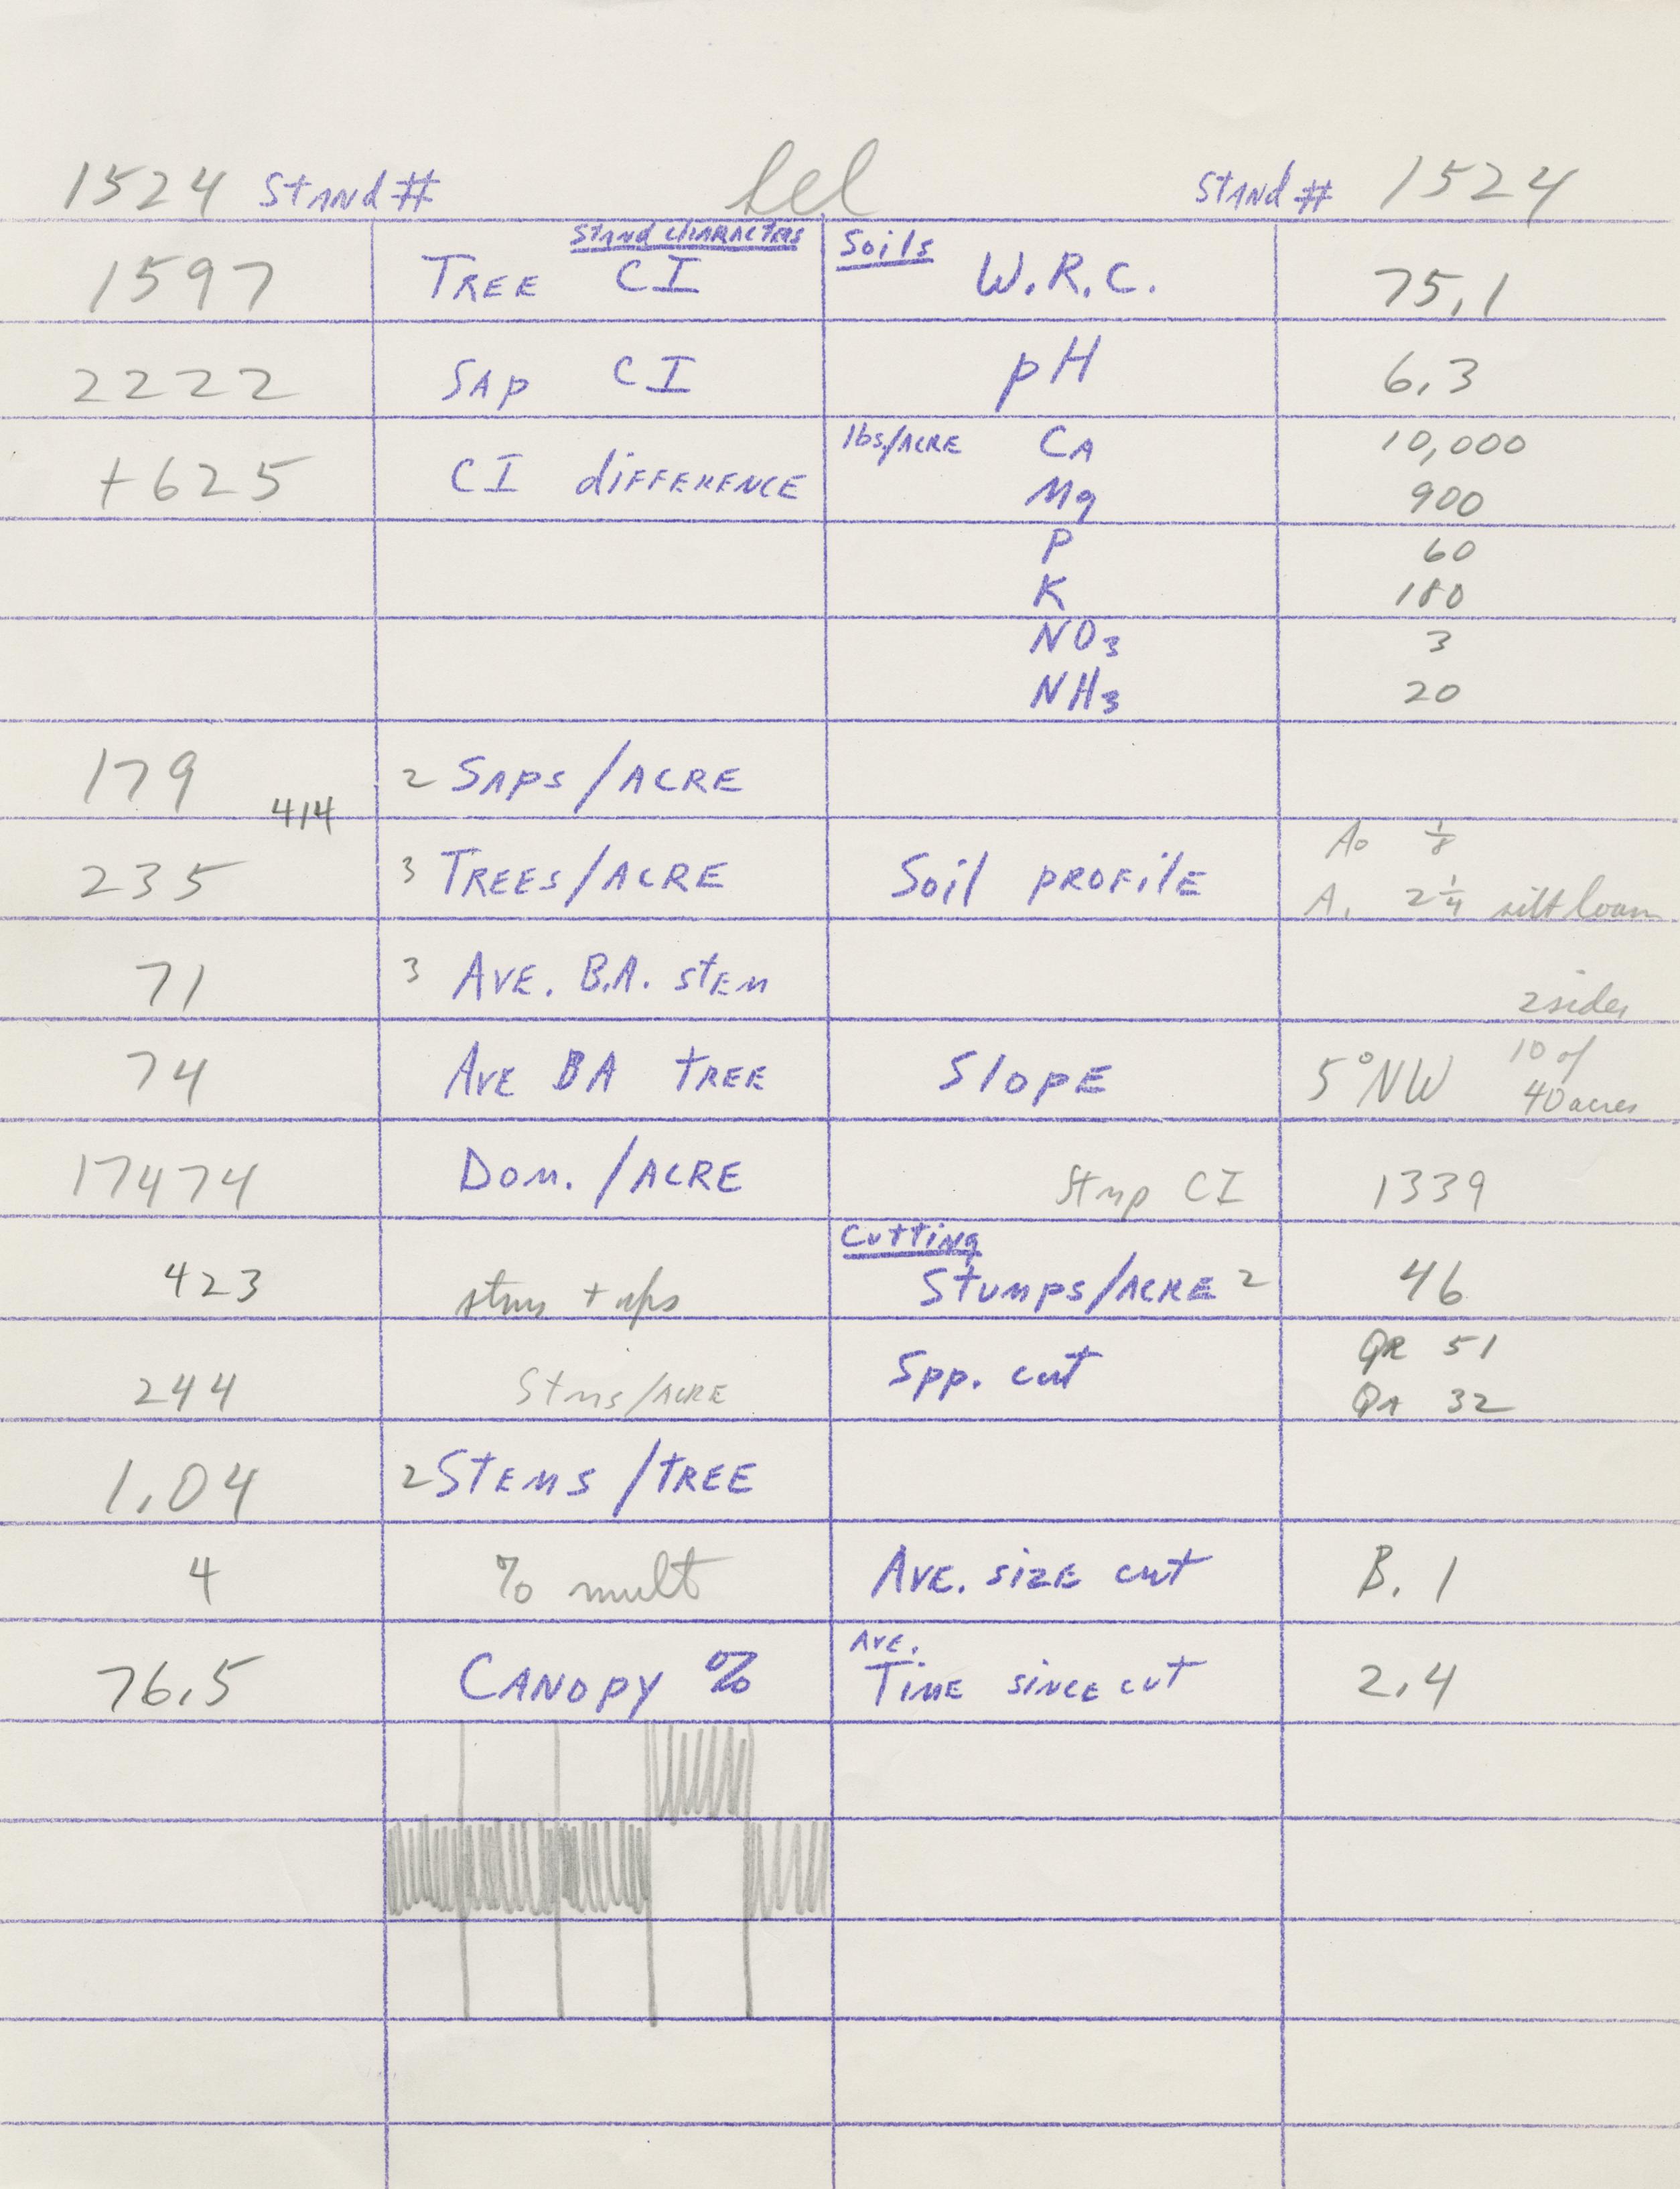 1524 Stand # Sel Stand # 1524
Stand Characters Soils
1597 Tree CI W.R.C. 75.1
2222 Sap CI pH 6.3
lbs/Acre Ca 10,000
+625 CI difference Mg 900
P 60
K 180
NO3 3
NH3 20
179 2 Saps/Acre
414
235 3 Trees/Acre Soil profile Ao 1/8
A1 2 1/4 silt loam
71 3 Ave. B.A. stem
2 sides
74 Ave BA tree Slope 5° NW 10 of
40 acres
17474 Dom./Acre Stmp CI 1339
Cutting
423 stms + sps Stumps/Acre 2 46
244 Stms/Acre Spp. cut QR 51
QA 32
1.04 2 Stems/tree
4 % mult Ave. size cut B.1
Ave.
76.5 Canopy % Time since cut 2.4